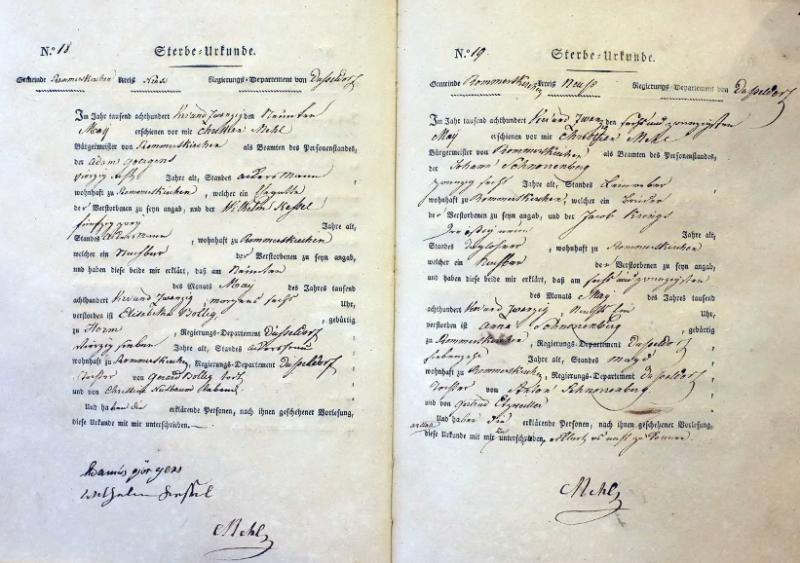 N.º 18
Sterbe-Urkunde.
Gemeinde Rommerskirchen Kreis Neuss Regierungs-Departement von Dusseldorf
Im Jahr tausend achthundert vier und zwanzig den Neunten
May erschienen vor mir Christian Mehl
Bürgermeister von Rommerskirchen als Beamten des Personenstandes,
der Adam Goergens
vierzig sechs Jahre alt, Standes Ackersmann
wohnhaft zu Rommerskirchen, welcher ein
der Verstorbenen zu seyn angab, und der Wilhelm Kessel
fünfzig zwey Jahre alt,
Standes Ackersmann, wohnhaft zu Rommerskirchen
welcher ein Nachbar der Verstorbenen zu seyn angab,
und haben diese beide mir erklärt, daß am Neunten
des Monats May des Jahres tausend
achthundert vier und zwanzig, morgens sechs Uhr,
verstorben ist Elisabetha Bollig, gebürtig
zu, Regierungs-Departement Dusseldorf
vierzig sieben Jahre alt, Standes Ackersfrau
wohnhaft zu Rommerskirchen, Regierungs-Departement Dusseldorf,
Tochter von Gerard Bollig
und von Christina
Und haben die erklärende Personen, nach ihnen geschehener Vorlesung,
diese Urkunde mit mir unterschrieben.
görgens
Wilhelm Kessel
Mehl
N.º 19
Sterbe-Urkunde.
Gemeinde Rommerskirchen Kreis Neuss Regierungs-Departement von Dusseldorf
Im Jahr tausend achthundert vier und zwanzig den sechs und zwanzigsten
May erschienen vor mir Christian Mehl
Bürgermeister von Rommerskirchen als Beamten des Personenstandes,
der Johann Schnorrenberg
zwanzig sechs Jahre alt, Standes
wohnhaft zu Rommerskirchen, welcher ein Bruder
der Verstorbenen zu seyn angab, und der Jacob
Jahre alt,
Standes Taglöhner, wohnhaft zu Rommerskirchen
welcher ein Nachbar der Verstorbenen zu seyn angab,
und haben diese beide mir erklärt, daß am sechs und zwanzigsten
des Monats May des Jahres tausend
achthundert vier und zwanzig, Nachts Uhr,
verstorben ist Anna Schnorrenberg, gebürtig
zu Rommerskirchen, Regierungs-Departement Dusseldorf
siebenzehn Jahre alt, Standes Magd
wohnhaft zu Rommerskirchen, Regierungs-Departement Dusseldorf,
Tochter von Anton Schnorrenberg
und von Gertrud
Und haben die erklärende Personen, nach ihnen geschehener Vorlesung,
diese Urkunde mit mir unterschrieben,
Mehl